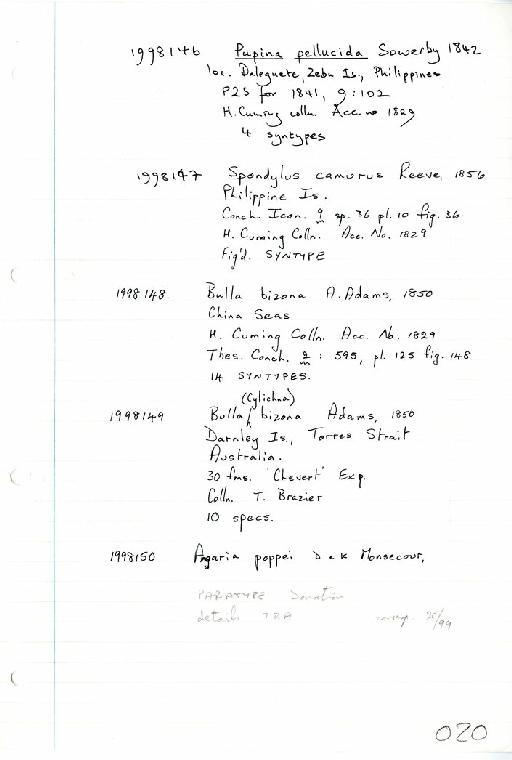 1998146 Pupina pellucida Sowerby 1842
loc. Daleguete, Zebu Is, Philippines
PZS for 1841, 9:102
H. Cuming colln. Acc. no 1829
4 syntypes
1998147 Spondylus camurus Reeve, 1856
Philippine Is.
Conch. Icon. 9 sp. 36 pl. 10 fig. 36
H. Cuming Colln. Acc. No. 1829
Fig'd. SYNTYPE
1998148 Bulla bizona A. Adams, 1850
China Seas
H. Cuming Colln. Acc. No. 1829
Thes. Conch. 2 : 595, pl. 125 fig. 148
14 SYNTYPES.
(Cylichna)
1998149 Bulla bizona Adams, 1850
Darnley Is., Torres Strait
Australia.
30 fms. 'Chevert' Exp.
Colln. T. Brazier
10 specs.
1998150 Agaria poppei D & K Monsecour,
PARATYPE Donation
details TBA
020